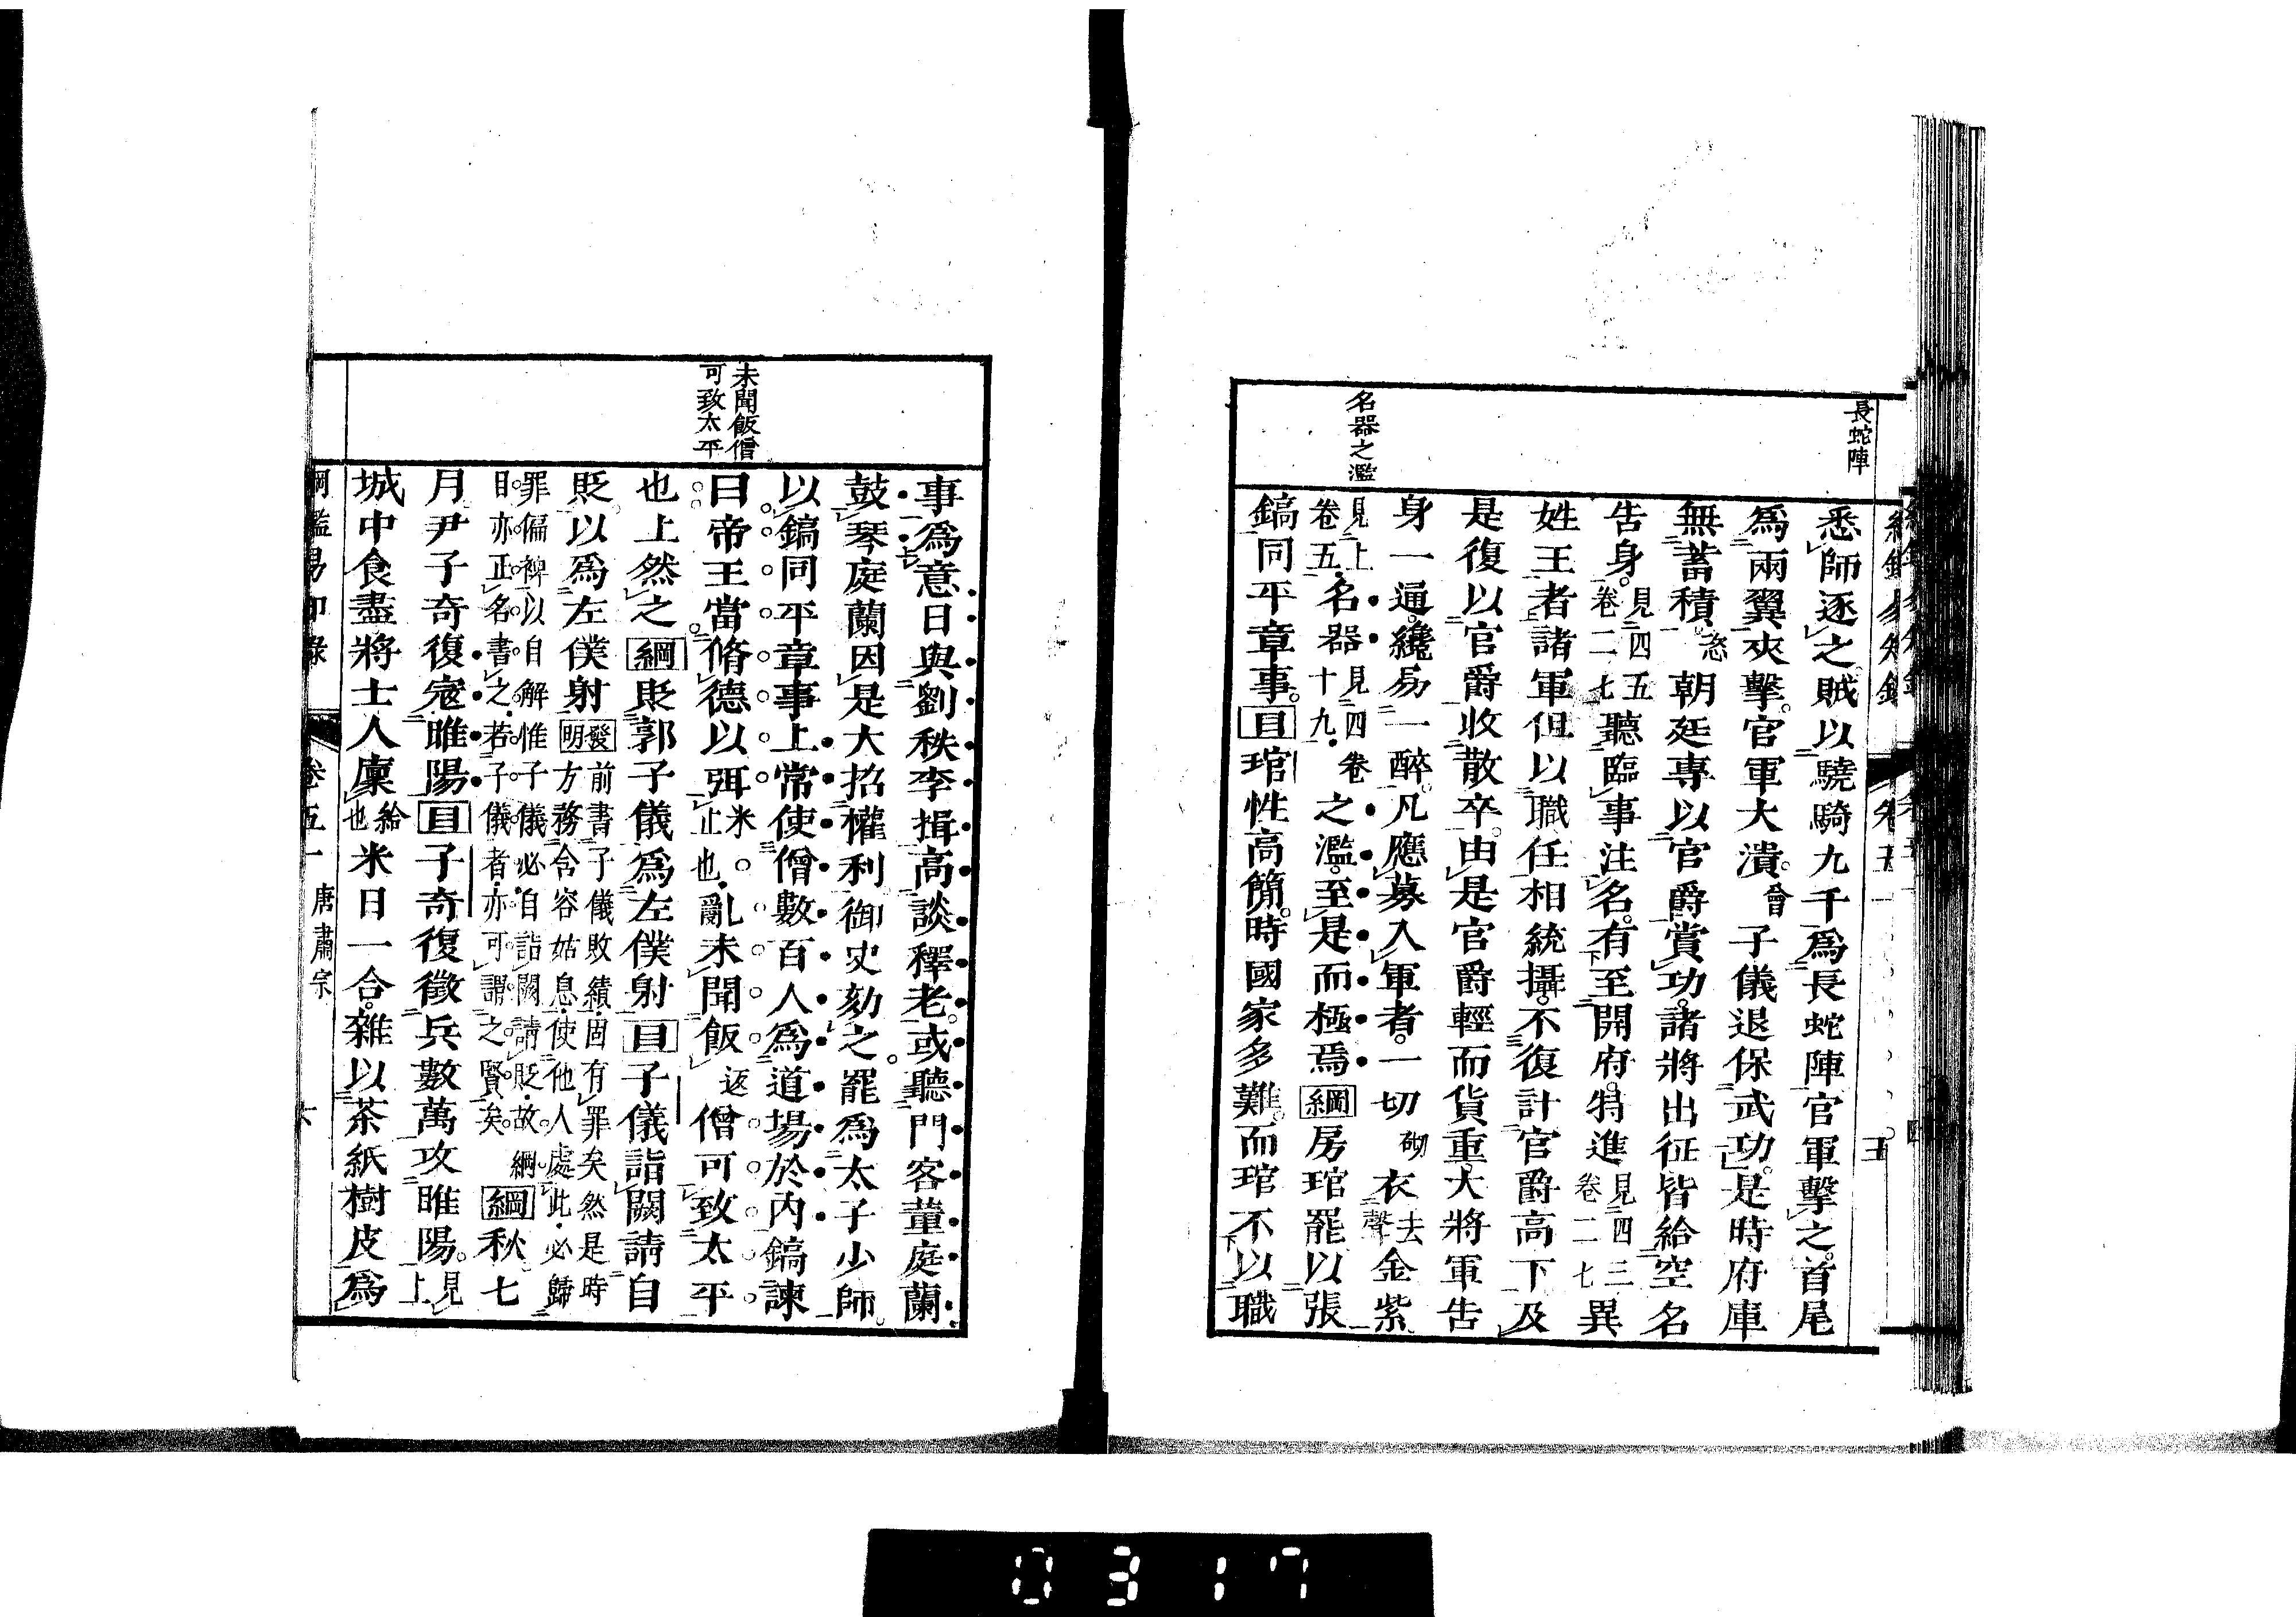 長蛇陣
名器之濫
悉師逐之賊以驍騎九千爲長蛇陣官軍擊之首尾
爲兩翼夾擊官軍大潰會子儀退保武功是時府庫
無蓄積恣朝廷專以官爵賞功諸將出征皆給空名
告身見四五卷二七聽臨事注名有至開府特進見四三卷二七異
姓王者諸軍但以職任相統攝不復計官爵高下及
是復以官爵收散卒由是官爵輕而貨重大將軍告
身一通纔易一醉凡應募入軍者一切砌衣去聲金紫
見上卷五名器見四卷十九之濫至是而極焉綱房琯罷以張
鎬同平章事目琯性高簡時國家多難而琯不以職
未聞飯僧
可致太平
事爲意日與劉秩李揖高談釋老或聽門客董庭蘭
鼓琴庭蘭因是大招權利御史劾之罷爲太子少師
以鎬同平章事上常使僧數百人爲道場於內鎬諫
曰帝王當脩德以弭米止也亂未聞飯返僧可致太平
也上然之綱貶郭子儀爲左僕射目子儀詣闕請自
貶以爲左僕射發明前書子儀敗績固有罪矣然是時方務含容姑息使他人處此必歸
罪偏裨以自解惟子儀必自詣闕請貶故綱目亦正名書之若子儀者亦可謂之賢矣綱秋七
月尹子奇復寇睢陽目子奇復徵兵數萬攻睢陽見上
城中食盡將士人廩給也米日一合雜以茶紙樹皮爲
綱鑑易知錄 卷五一 唐肅宗 六
0317